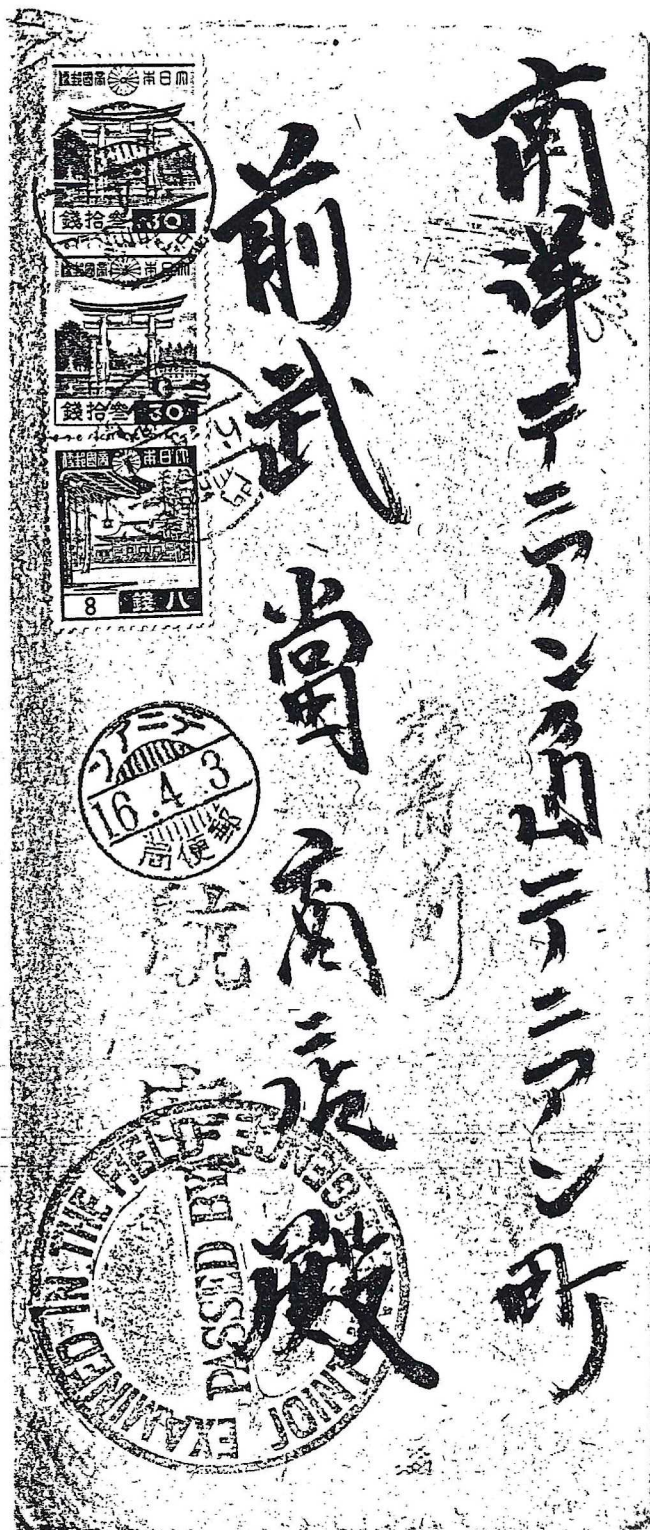 南洋テニアン島テニアン町
前武當商店殿
大日本帝國郵便
参拾錢 30
大日本帝國郵便
参拾錢 30
大日本帝國郵便
八錢 8
テニアン
16.4.3
郵便局
航
JOINT EXAMINED IN THE FIELD
PASSED BY